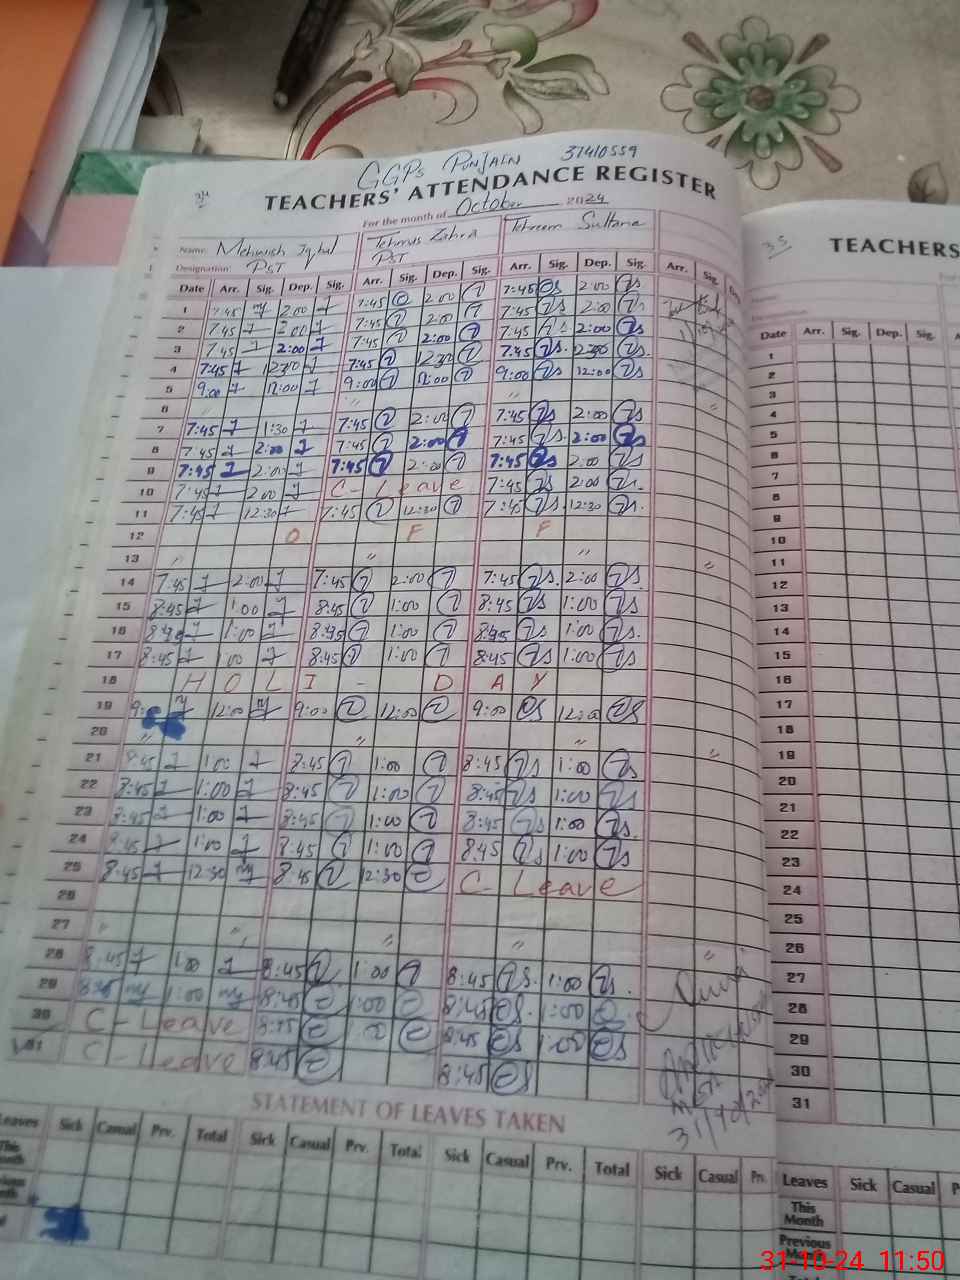 GGPS PUNJAIN 37410559
TEACHERS' ATTENDANCE REGISTER
For the month of October 2024
Name: Mehwish Iqbal Tehmus Zahra Tehreem Sultana
Designation: PST PST
Date Arr. Sig. Dep. Sig. Arr. Sig. Dep. Sig. Arr. Sig. Dep. Sig. Arr. Sig. Dep.
1 7:45 2:00 7:45 2:00 7:45 2:00
2 7:45 2:00 7:45 2:00 7:45 2:00
3 7:45 2:00 7:45 2:00 7:45 2:00
4 7:45 12:30 7:45 12:30 7:45 12:30
5 9:00 12:00 9:00 12:00 9:00 12:00
6 " " " "
7 7:45 1:30 7:45 2:00 7:45 2:00
8 7:45 2:00 7:45 2:00 7:45 2:00
9 7:45 2:00 7:45 2:00 7:45 2:00
10 7:45 2:00 C- Leave 7:45 2:00
11 7:45 12:30 7:45 12:30 7:45 12:30
12 O F F
13 " " " "
14 7:45 2:00 7:45 2:00 7:45 2:00
15 8:45 1:00 8:45 1:00 8:45 1:00
16 8:45 1:00 8:45 1:00 8:45 1:00
17 8:45 1:00 8:45 1:00 8:45 1:00
18 H O L I - D A Y
19 9: 12:00 9:00 12:00 9:00 12:00
20 " " " "
21 8:45 1:00 8:45 1:00 8:45 1:00
22 8:45 1:00 8:45 1:00 8:45 1:00
23 8:45 1:00 8:45 1:00 8:45 1:00
24 8:45 1:00 8:45 1:00 8:45 1:00
25 8:45 12:30 8:45 12:30 C- Leave
26
27 " " " " "
28 8:45 1:00 8:45 1:00 8:45 1:00
29 8:45 1:00 8:45 1:00 8:45 1:00
30 C-Leave 8:45 :00 8:45 1:00
31 C-Leave 8:45 8:45
31/10/2024
STATEMENT OF LEAVES TAKEN
Leaves Sick Casual Prv. Total Sick Casual Prv. Total Sick Casual Prv. Total Sick Casual Prv.
This Month
35
TEACHERS
Date Arr. Sig. Dep. Sig.
1
2
3
4
5
6
7
8
9
10
11
12
13
14
15
16
17
18
19
20
21
22
23
24
25
26
27
28
29
30
31
Leaves Sick Casual
This Month
Previous Month
31-10-24 11:50